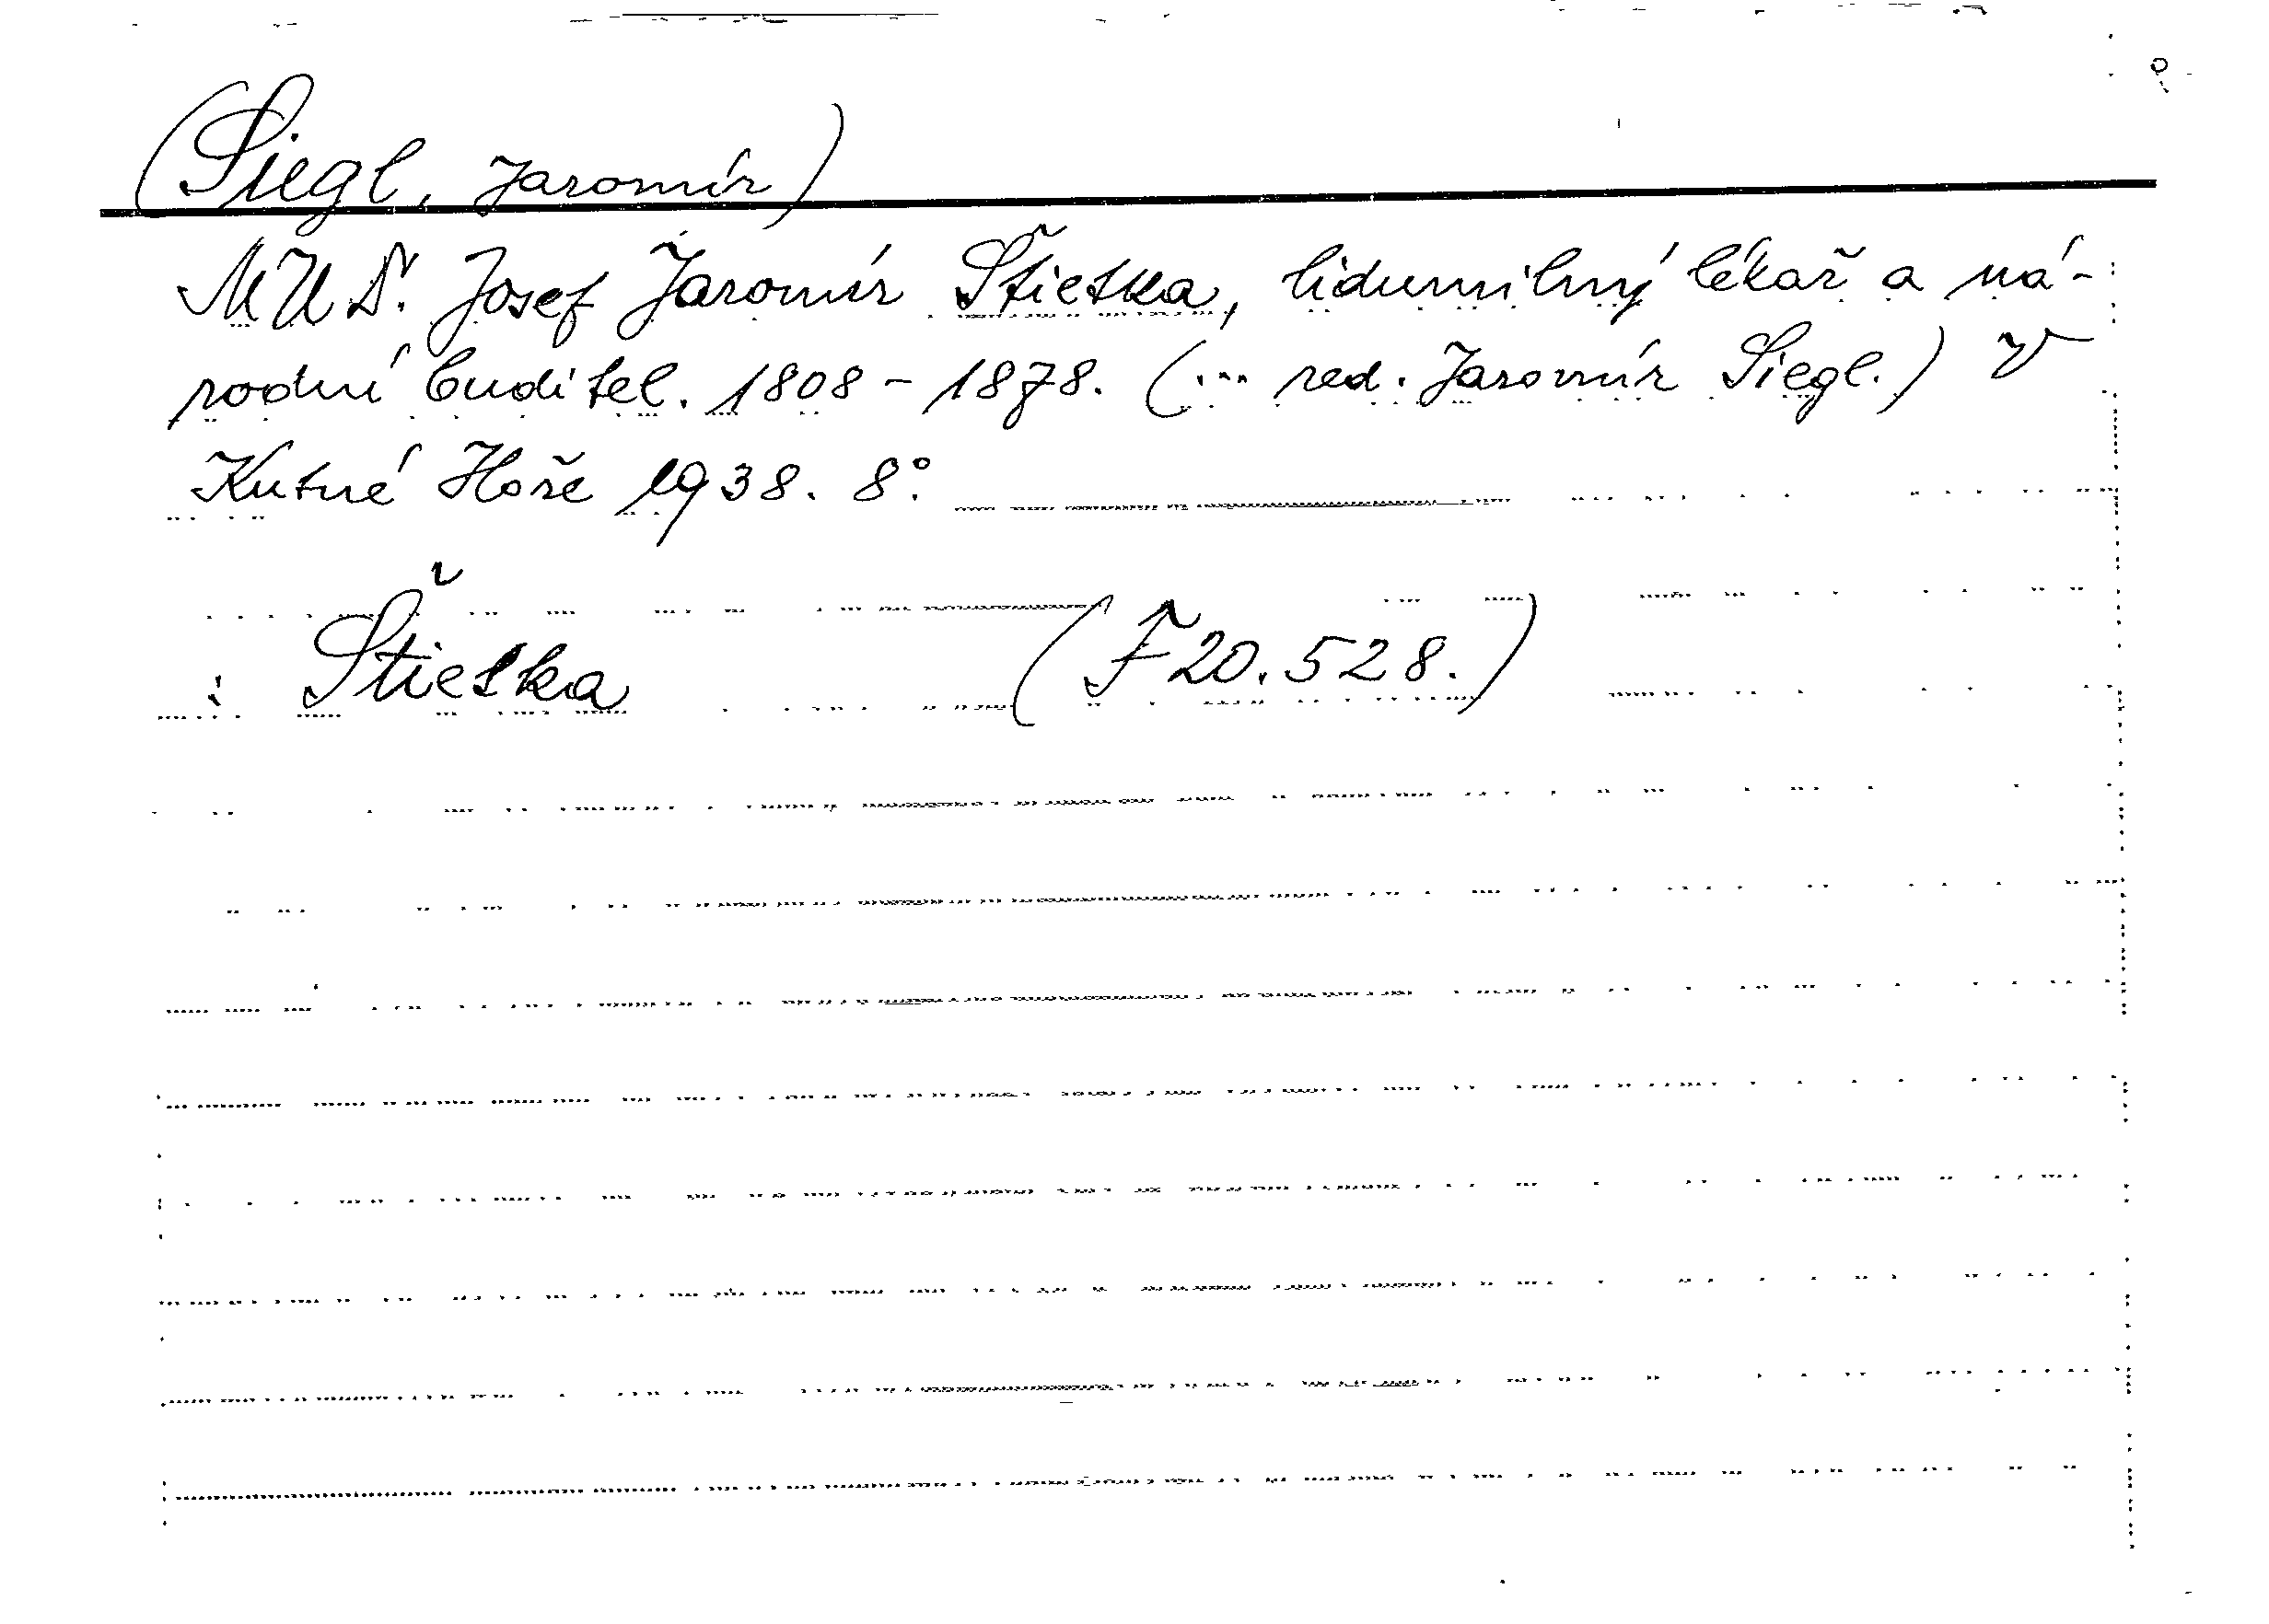 (Siegl, Jaromír)
MUDr. Josef Jaromír Štětka, lidumilný lékař a ná-
rodní buditel. 1808 - 1878. (... red. Jaromír Siegl.) V
Kutné Hoře 1938. 8°.
: Štětka (F 20.528.)